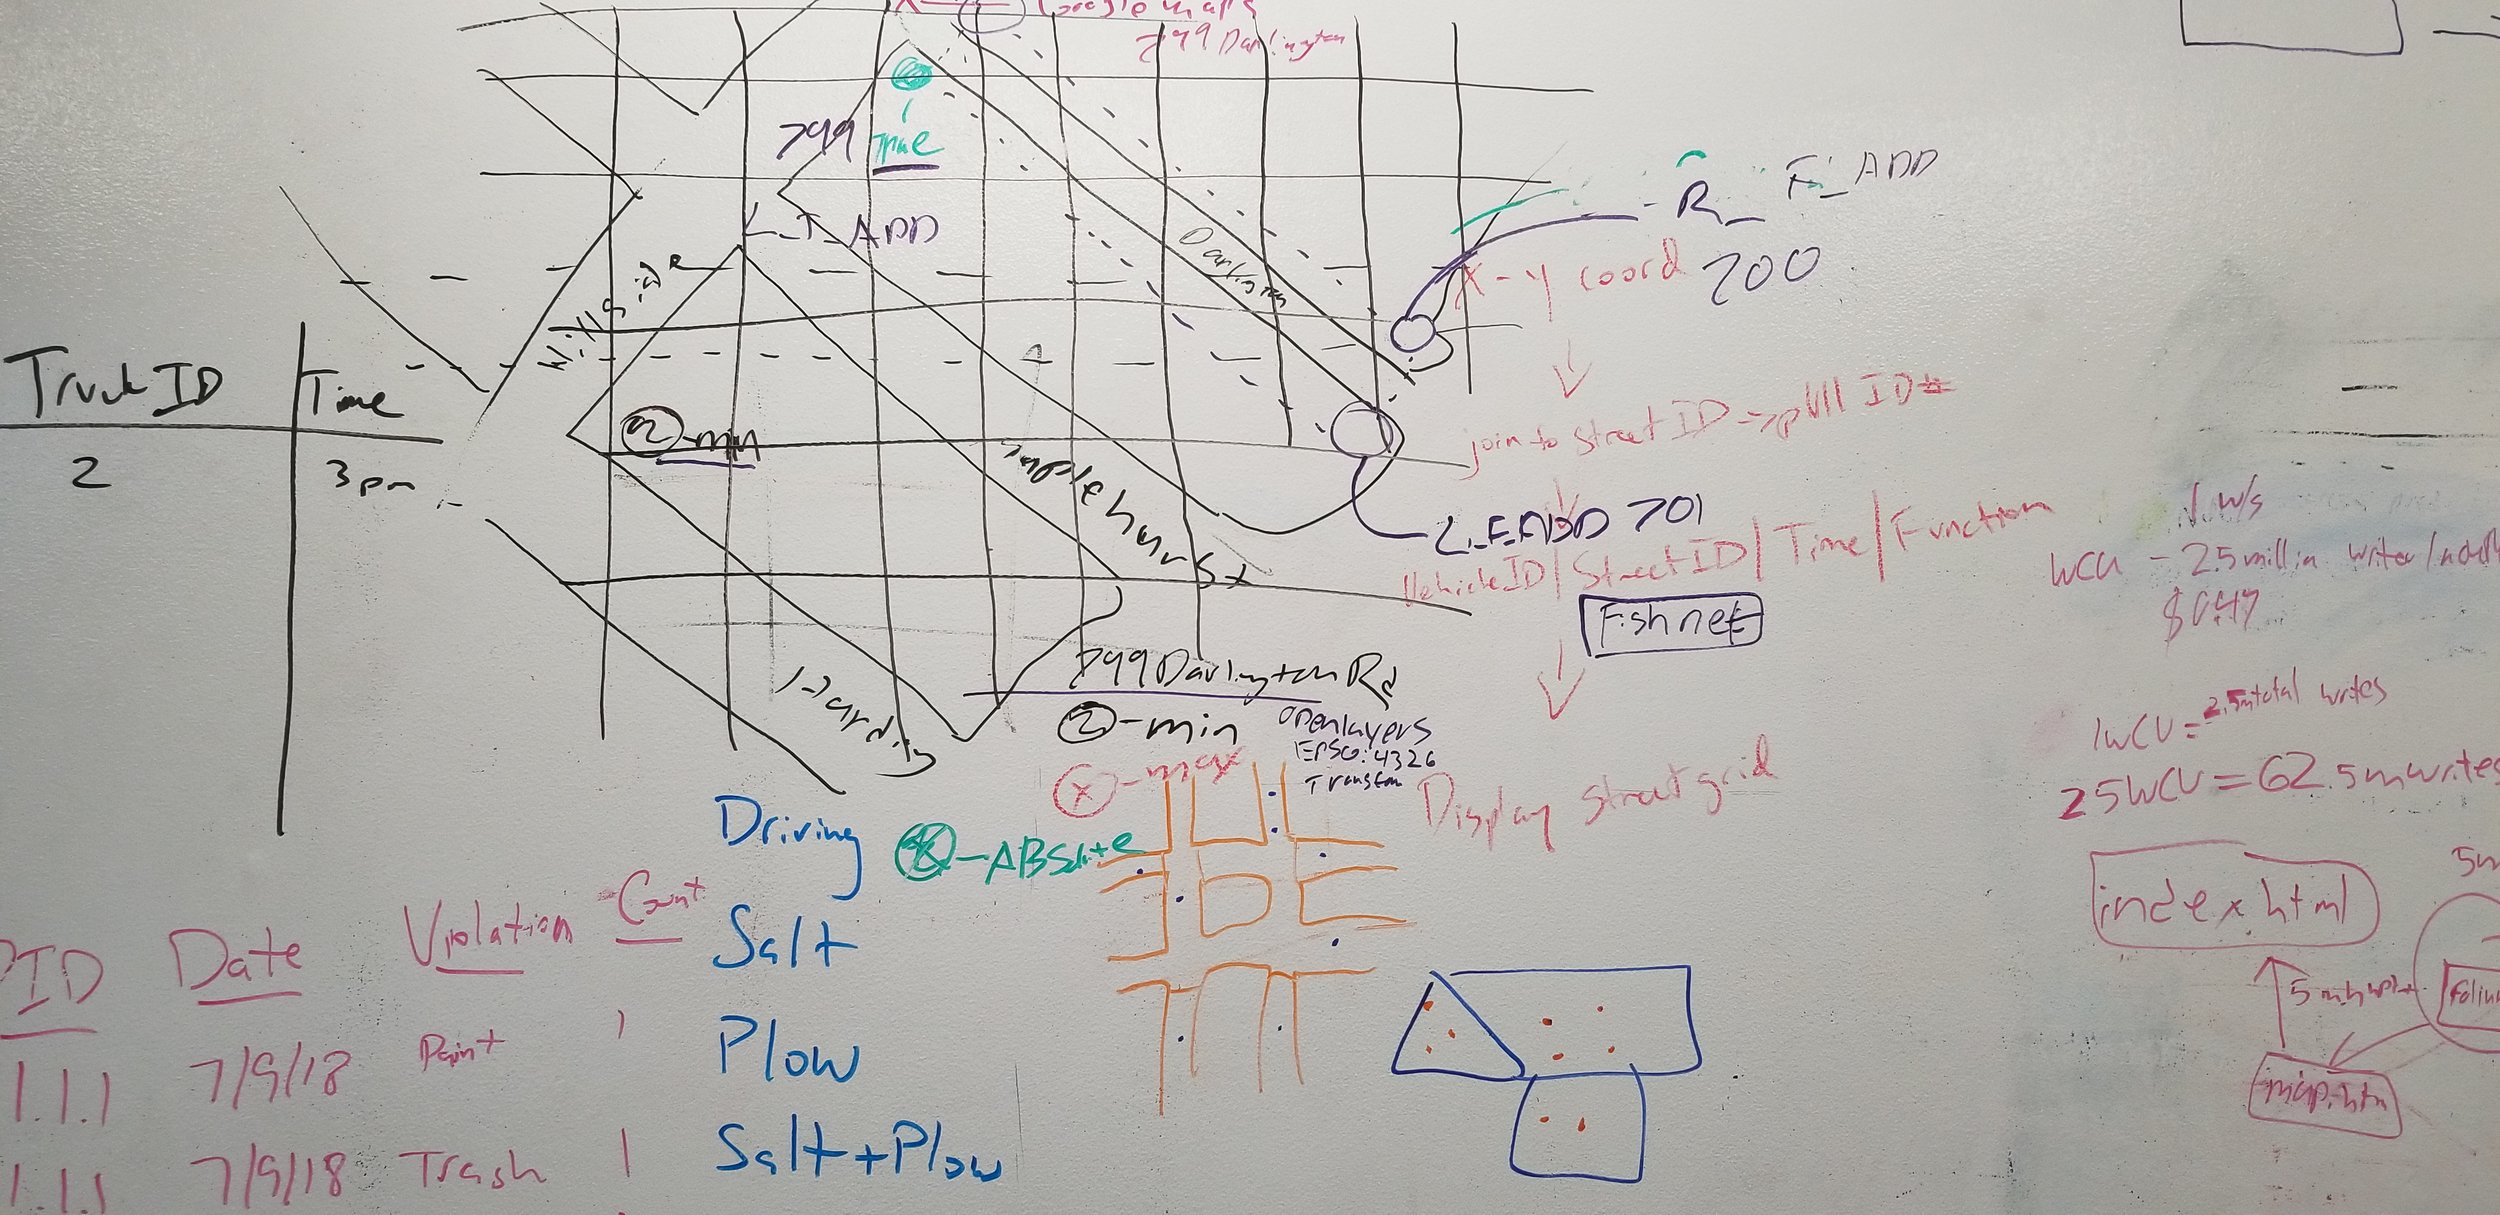 Google maps
799 Darlington
799 True
L_T_ADD
R_F_ADD
700
X-Y coord
Darlington
Hillside
Truck ID Time
2 3pm
2 -min
join to Street ID -> pull ID#
Maplehurst
L_F_ADD 701
Vehicle ID | Street ID | Time | Function
Fishnet
1 w/s
WCU - 2.5 million writes/month
$0.47
799 Darlington Rd
2 -min
openlayers
EPSG:4326
Transform
X -max
Harding
Display street grid
1WCU = 2.5m total writes
25WCU = 62.5m writes
Driving
X -ABSolute
index.html
5m
PID Date Violation Count
Salt
5 min update
Folium
1.1.1 7/9/18 Paint 1
Plow
map.htm
1.1.1 7/9/18 Trash 1
Salt + Plow